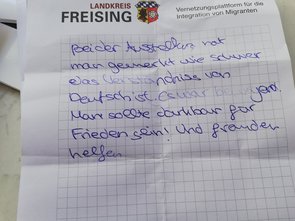 LANDKREIS
FREISING
Vernetzungsplattform für die
Integration von Migranten
Bei der Ausstellung hat
man gemerkt wie schwer
das Verständnis von
Deutsch ist. Es war
Man sollte dankbar für
Frieden sein! Und fremden
helfen